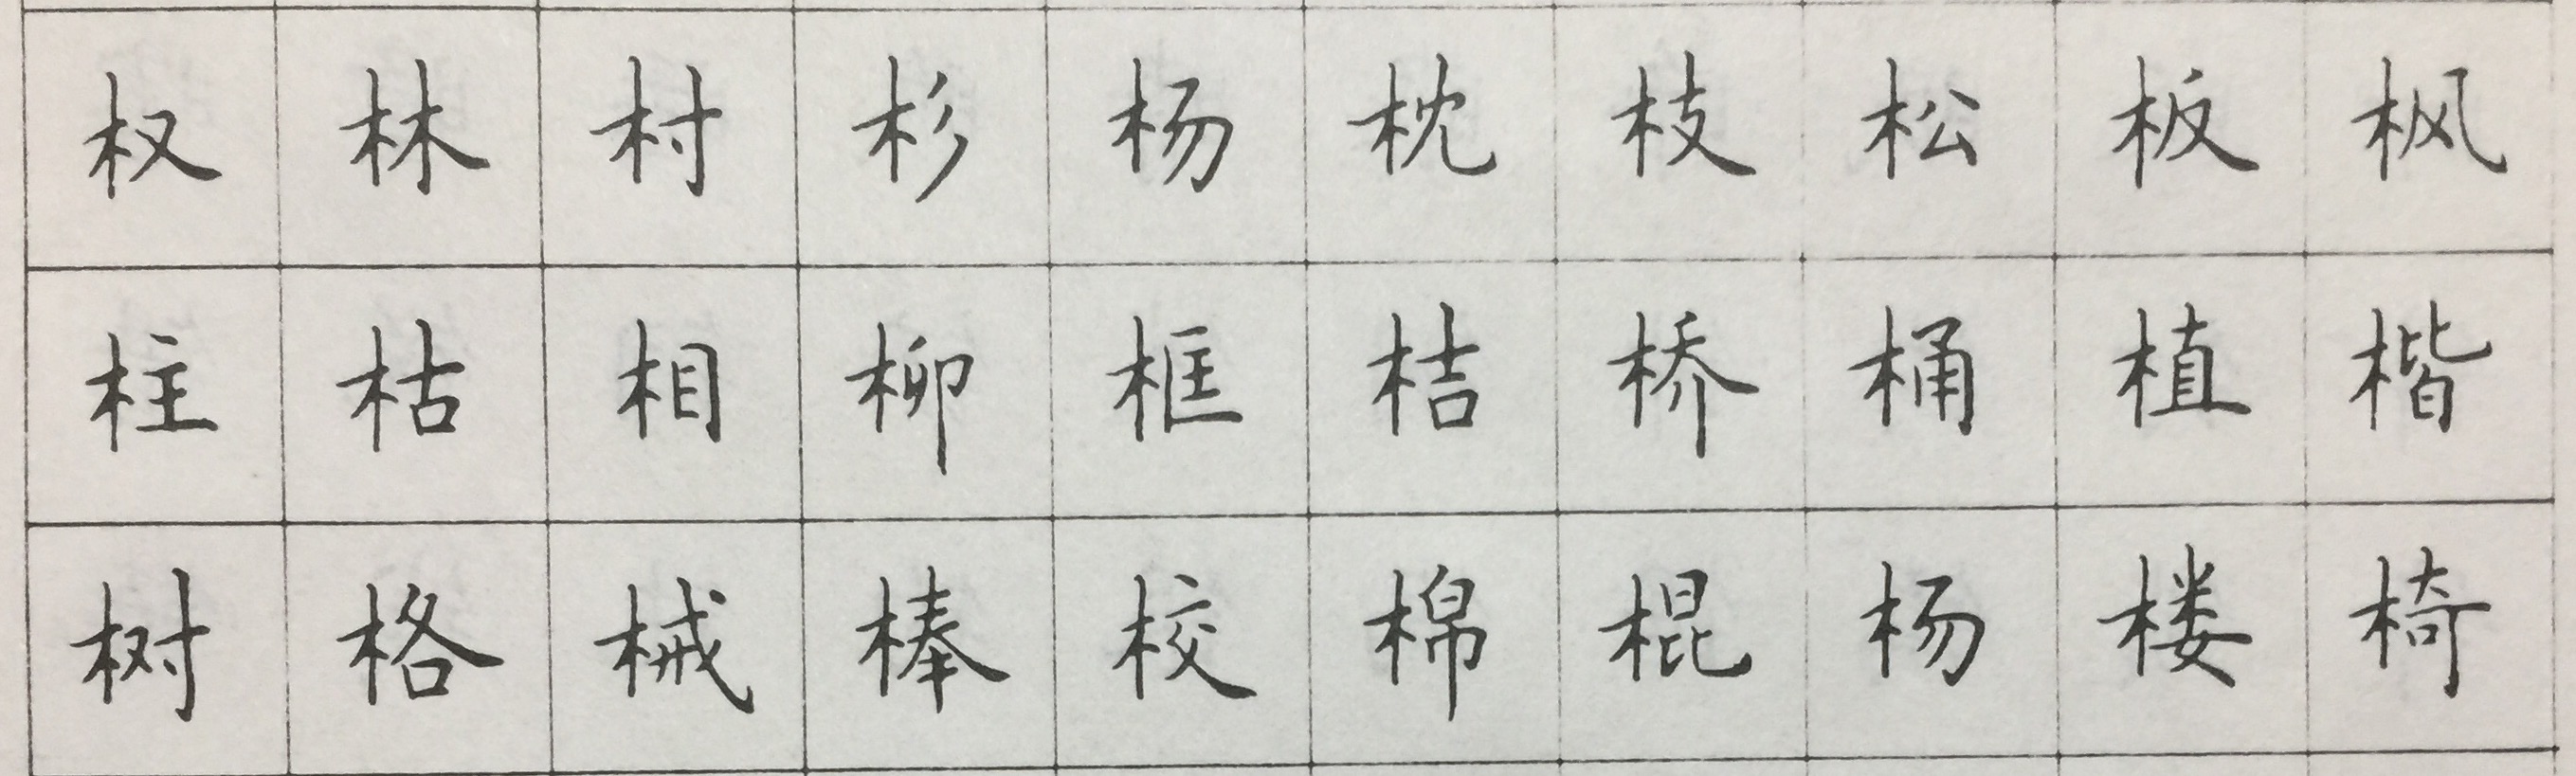 权林村杉杨枕枝松板枫
柱枯相柳框桔桥桶植楷
树格械棒校棉棍杨楼椅